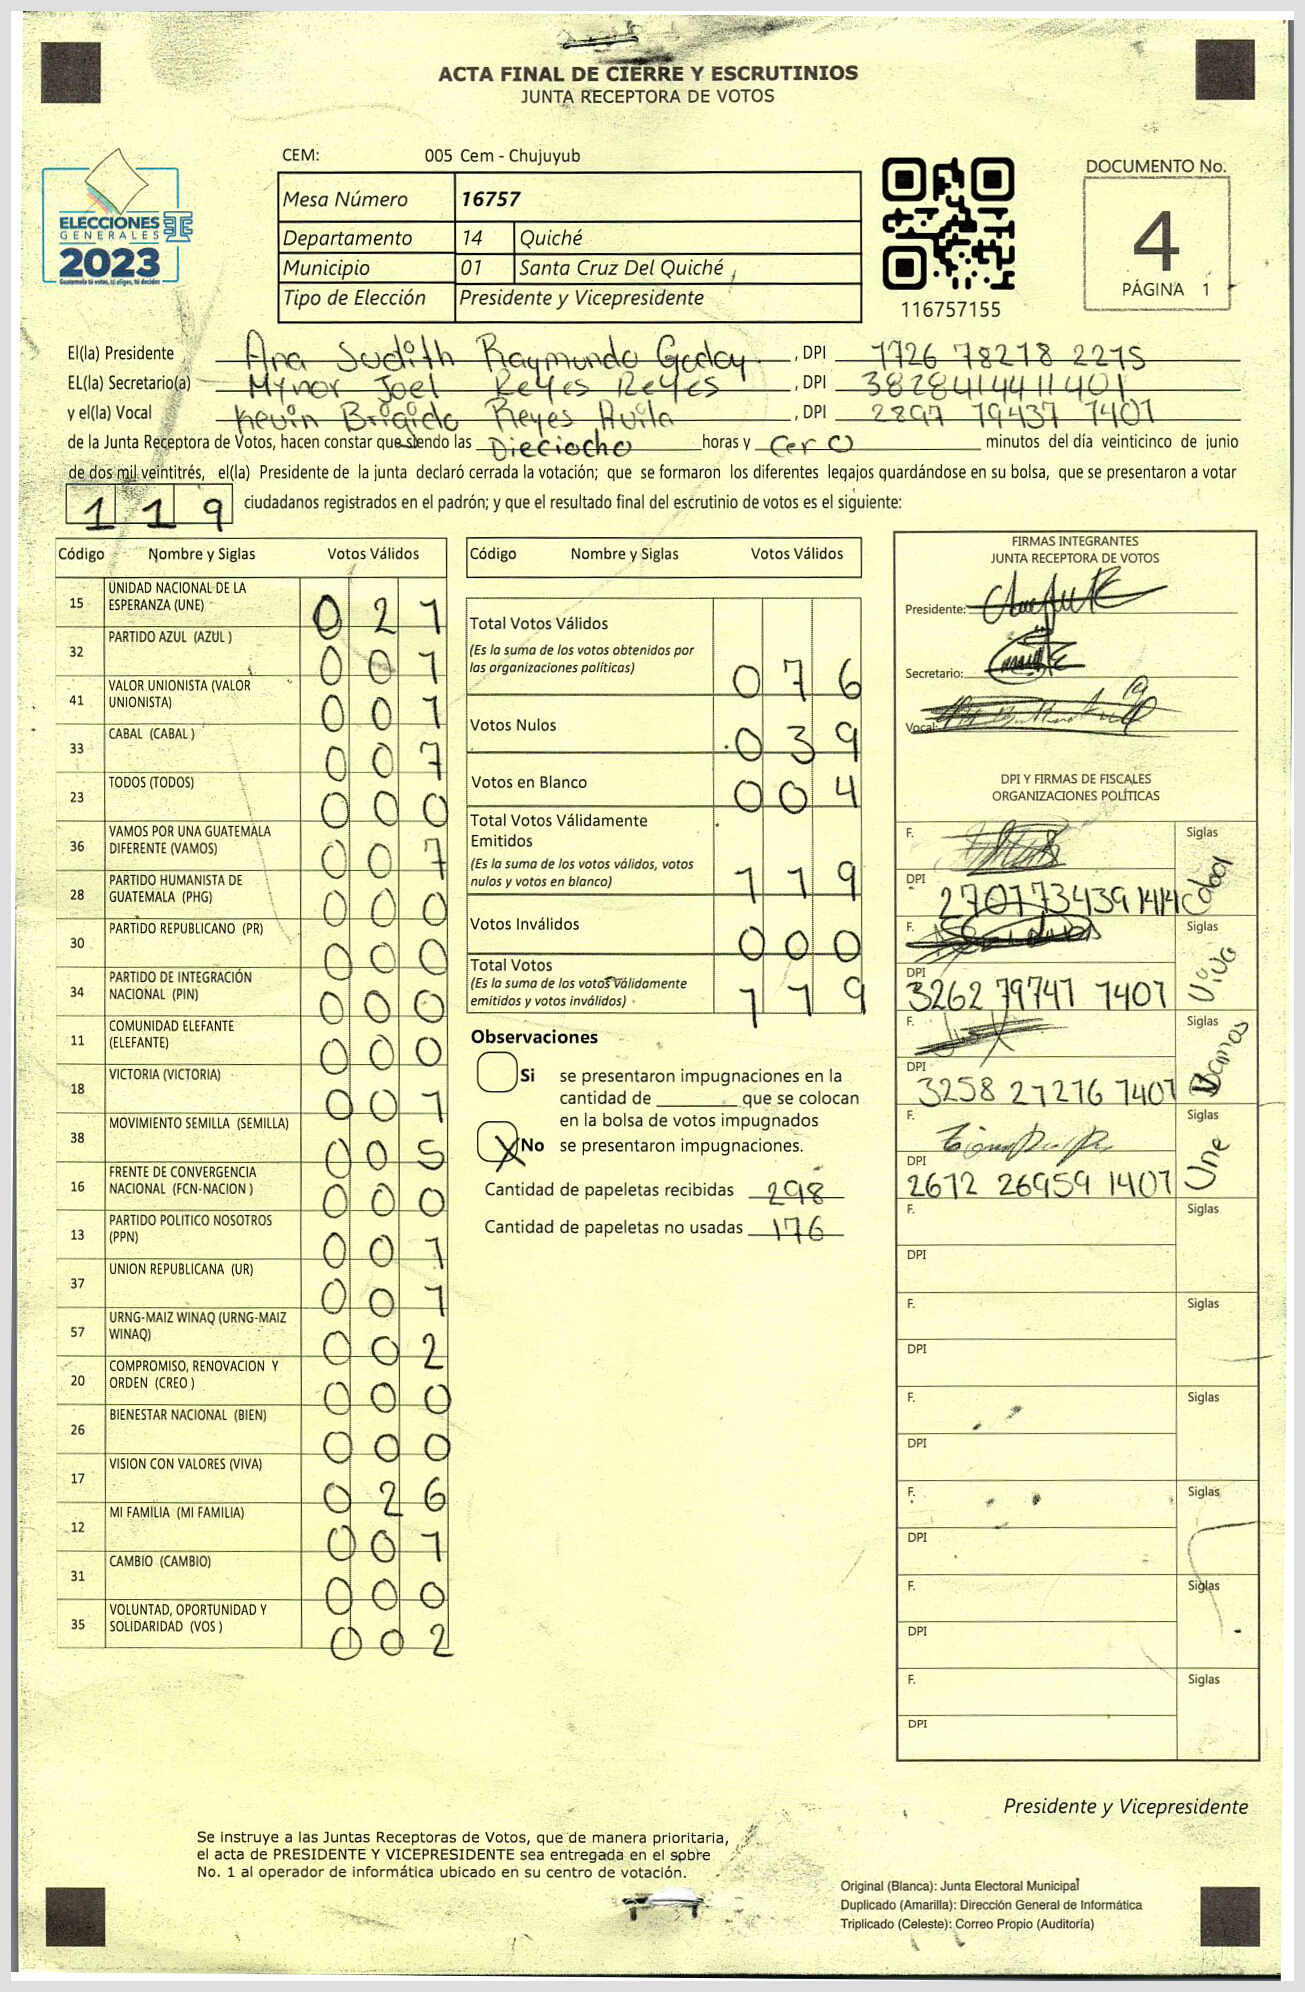 ACTA FINAL DE CIERRE Y ESCRUTINIOS
JUNTA RECEPTORA DE VOTOS
CEM: 005 Cem - Chujuyub
Mesa Número 16757
Departamento 14 Quiché
Municipio 01 Santa Cruz Del Quiché
Tipo de Elección Presidente y Vicepresidente
ELECCIONES
GENERALES
2023
Guatemala tú votas, tú eliges, tú decides
116757155
DOCUMENTO No.
4
PÁGINA 1
El(la) Presidente Ana Judith Raymundo Godoy, DPI 1726 78218 2215
EL(la) Secretario(a) Mynor Joel Reyes Reyes, DPI 3828414411401
y el(la) Vocal Kevin Brigido Reyes Avila, DPI 2897 19437 1401
de la Junta Receptora de Votos, hacen constar que siendo las Dieciocho horas y cero minutos del día veinticinco de junio
de dos mil veintitrés, el(la) Presidente de la junta declaró cerrada la votación; que se formaron los diferentes legajos guardándose en su bolsa, que se presentaron a votar
119 ciudadanos registrados en el padrón; y que el resultado final del escrutinio de votos es el siguiente:
Código Nombre y Siglas Votos Válidos
15 UNIDAD NACIONAL DE LA ESPERANZA (UNE) 021
32 PARTIDO AZUL (AZUL ) 001
41 VALOR UNIONISTA (VALOR UNIONISTA) 001
33 CABAL (CABAL ) 007
23 TODOS (TODOS) 000
36 VAMOS POR UNA GUATEMALA DIFERENTE (VAMOS) 007
28 PARTIDO HUMANISTA DE GUATEMALA (PHG) 000
30 PARTIDO REPUBLICANO (PR) 000
34 PARTIDO DE INTEGRACIÓN NACIONAL (PIN) 000
11 COMUNIDAD ELEFANTE (ELEFANTE) 000
18 VICTORIA (VICTORIA) 001
38 MOVIMIENTO SEMILLA (SEMILLA) 005
16 FRENTE DE CONVERGENCIA NACIONAL (FCN-NACION ) 000
13 PARTIDO POLITICO NOSOTROS (PPN) 001
37 UNION REPUBLICANA (UR) 001
57 URNG-MAIZ WINAQ (URNG-MAIZ WINAQ) 002
20 COMPROMISO, RENOVACION Y ORDEN (CREO ) 000
26 BIENESTAR NACIONAL (BIEN) 000
17 VISION CON VALORES (VIVA) 026
12 MI FAMILIA (MI FAMILIA) 001
31 CAMBIO (CAMBIO) 000
35 VOLUNTAD, OPORTUNIDAD Y SOLIDARIDAD (VOS ) 002
Código Nombre y Siglas Votos Válidos
Total Votos Válidos 076
(Es la suma de los votos obtenidos por
las organizaciones políticas)
Votos Nulos 039
Votos en Blanco 004
Total Votos Válidamente
Emitidos 119
(Es la suma de los votos válidos, votos
nulos y votos en blanco)
Votos Inválidos 000
Total Votos 119
(Es la suma de los votos válidamente
emitidos y votos inválidos)
Observaciones
Si se presentaron impugnaciones en la
cantidad de ________ que se colocan
en la bolsa de votos impugnados
X No se presentaron impugnaciones.
Cantidad de papeletas recibidas 298
Cantidad de papeletas no usadas 176
FIRMAS INTEGRANTES
JUNTA RECEPTORA DE VOTOS
Presidente:
Secretario:
Vocal:
DPI Y FIRMAS DE FISCALES
ORGANIZACIONES POLÍTICAS
F. Siglas Cabal
DPI 2701734391414
F. Siglas Viva
DPI 3262 79741 1401
F. Siglas Bamos
DPI 3258 21276 1401
F. Siglas Une
DPI 2672 26959 1401
F. Siglas
DPI
F. Siglas
DPI
F. Siglas
DPI
F. Siglas
DPI
F. Siglas
DPI
F. Siglas
DPI
Presidente y Vicepresidente
Se instruye a las Juntas Receptoras de Votos, que de manera prioritaria,
el acta de PRESIDENTE Y VICEPRESIDENTE sea entregada en el sobre
No. 1 al operador de informática ubicado en su centro de votación.
Original (Blanca): Junta Electoral Municipal
Duplicado (Amarilla): Dirección General de Informática
Triplicado (Celeste): Correo Propio (Auditoría)